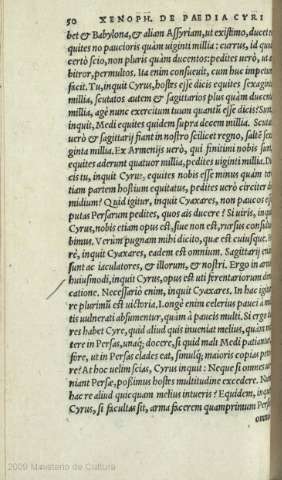 50 XENOPH. DE PAEDIA CYRI
bet & Babylona, & aliam Assyriam, ut existimo, ducet
quites no paucioris quàm uiginti millia: currus, id qui
certò scio, non pluris quàm ducentos: pedites uerò, ut
bitror, permultos. Ita enim consueuit, cum huc impetum
facit. Tu, inquit Cyrus, hostis esse dicis equites sexaginta
millia, scutatos autem & sagittarios plus quàm ducenta
millia, agè nunc exercitum tuum quantū esse dicis? Sunt,
inquit, Medi equites quidem supra decem millia. Scuta
uerò & sagittarij fiant in nostro scilicet regno, saltē sexa
ginta millia. Ex Armenijs uerò, qui finitimi nobis sunt,
equites aderunt quatuor millia, pedites uiginti millia. Di
cis tu, inquit Cyrus, equites nobis esse minus quàm ter
tiam partem hostium equitatus, pedites uerò circiter di
midium? Quid igitur, inquit Cyaxares, non paucos es
putas Persarum pedites, quos ais ducere? Si uiris, inquit
Cyrus, nobis etiam opus est, siue non est, rursus consulta
bimus. Verùm pugnam mihi dicito, quæ est cuiusque.
rè, inquit Cyaxares, eadem est omnium. Sagittarij enim
sunt ac iaculatores, & illorum, & nostri. Ergo in armis
huiusmodi, inquit Cyrus, opus est uti ferentariorum
catione. Necessariò enim, inquit Cyaxares. In hac igitur
re plurimū est uictoria. Longè enim celerius pauci à mul
tis uulnerati absumentur, quàm à paucis multi. Si ergo
res habet Cyre, quid aliud quis inueniat melius, quàm mit
tere in Persas, unaq; docere, si quid mali Medi patiantur
fore, ut in Persas clades eat, simulq; maioris copias pete
re? At hoc uelim scias, Cyrus inquit: Neque si omnes
niant Persæ, possimus hostes multitudine excedere.
hac re aliud quicquam melius intueris? Equidem, inquit
Cyrus, si facultas sit, arma facerem quamprimum Persis
omni
2009 Ministerio de Cultura